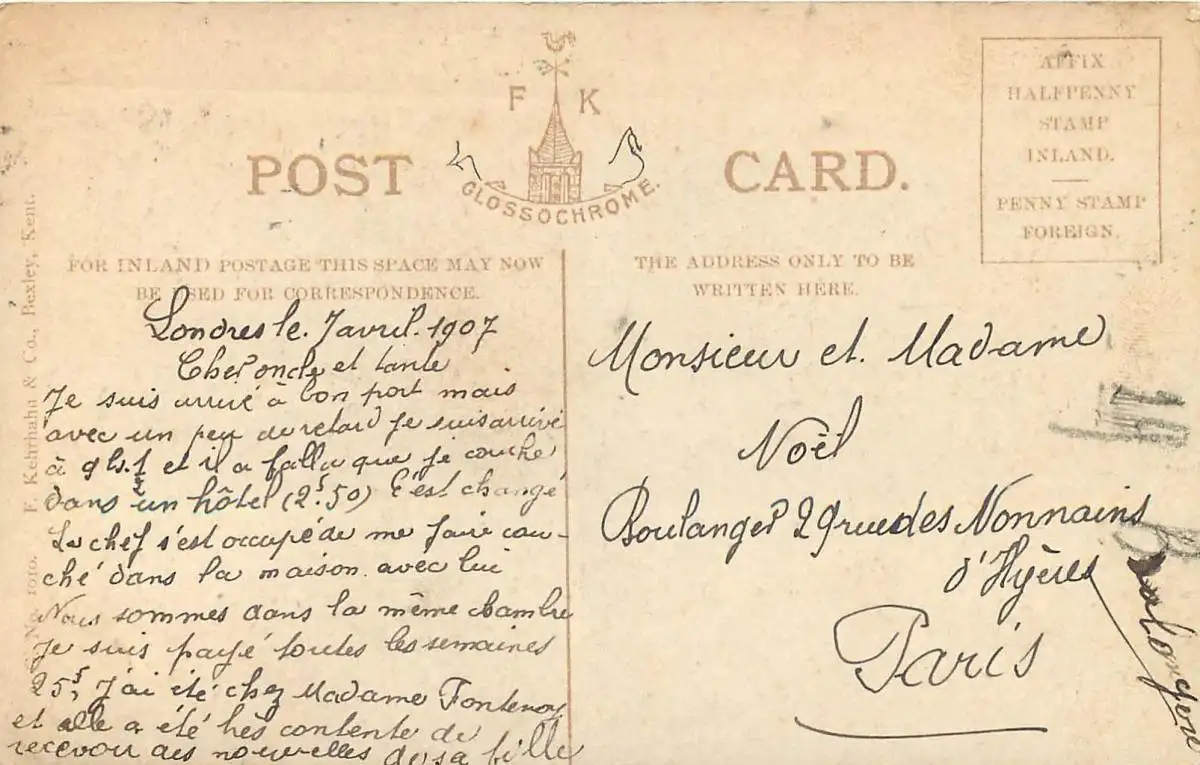 F K
POST CARD.
GLOSSOCHROME.
AFFIX
HALFPENNY
STAMP
INLAND.
PENNY STAMP
FOREIGN.
FOR INLAND POSTAGE THIS SPACE MAY NOW
BE USED FOR CORRESPONDENCE.
THE ADDRESS ONLY TO BE
WRITTEN HERE.
Londres le. 7 avril. 1907
Cher oncle et tante
Je suis arrivé à bon port mais
avec un peu de retard je suis arrivé
à 9 h. 1 et il a falla que je couche
dans un hôtel (2f50) C'est changé
Le chef s'est occupé de me faire cou-
ché dans la maison avec lui
Nous sommes dans la même chambre
Je suis payé toutes les semaines
25f, J'ai été chez Madame Fontenoy
et elle a été très contente de
recevoir des nouvelles de sa fille
Monsieur et. Madame
Noël
Boulanger 29 rue des Nonnains
d'Hyères
Paris
No. 1010. F. Kehrhahn & Co., Bexley, Kent.